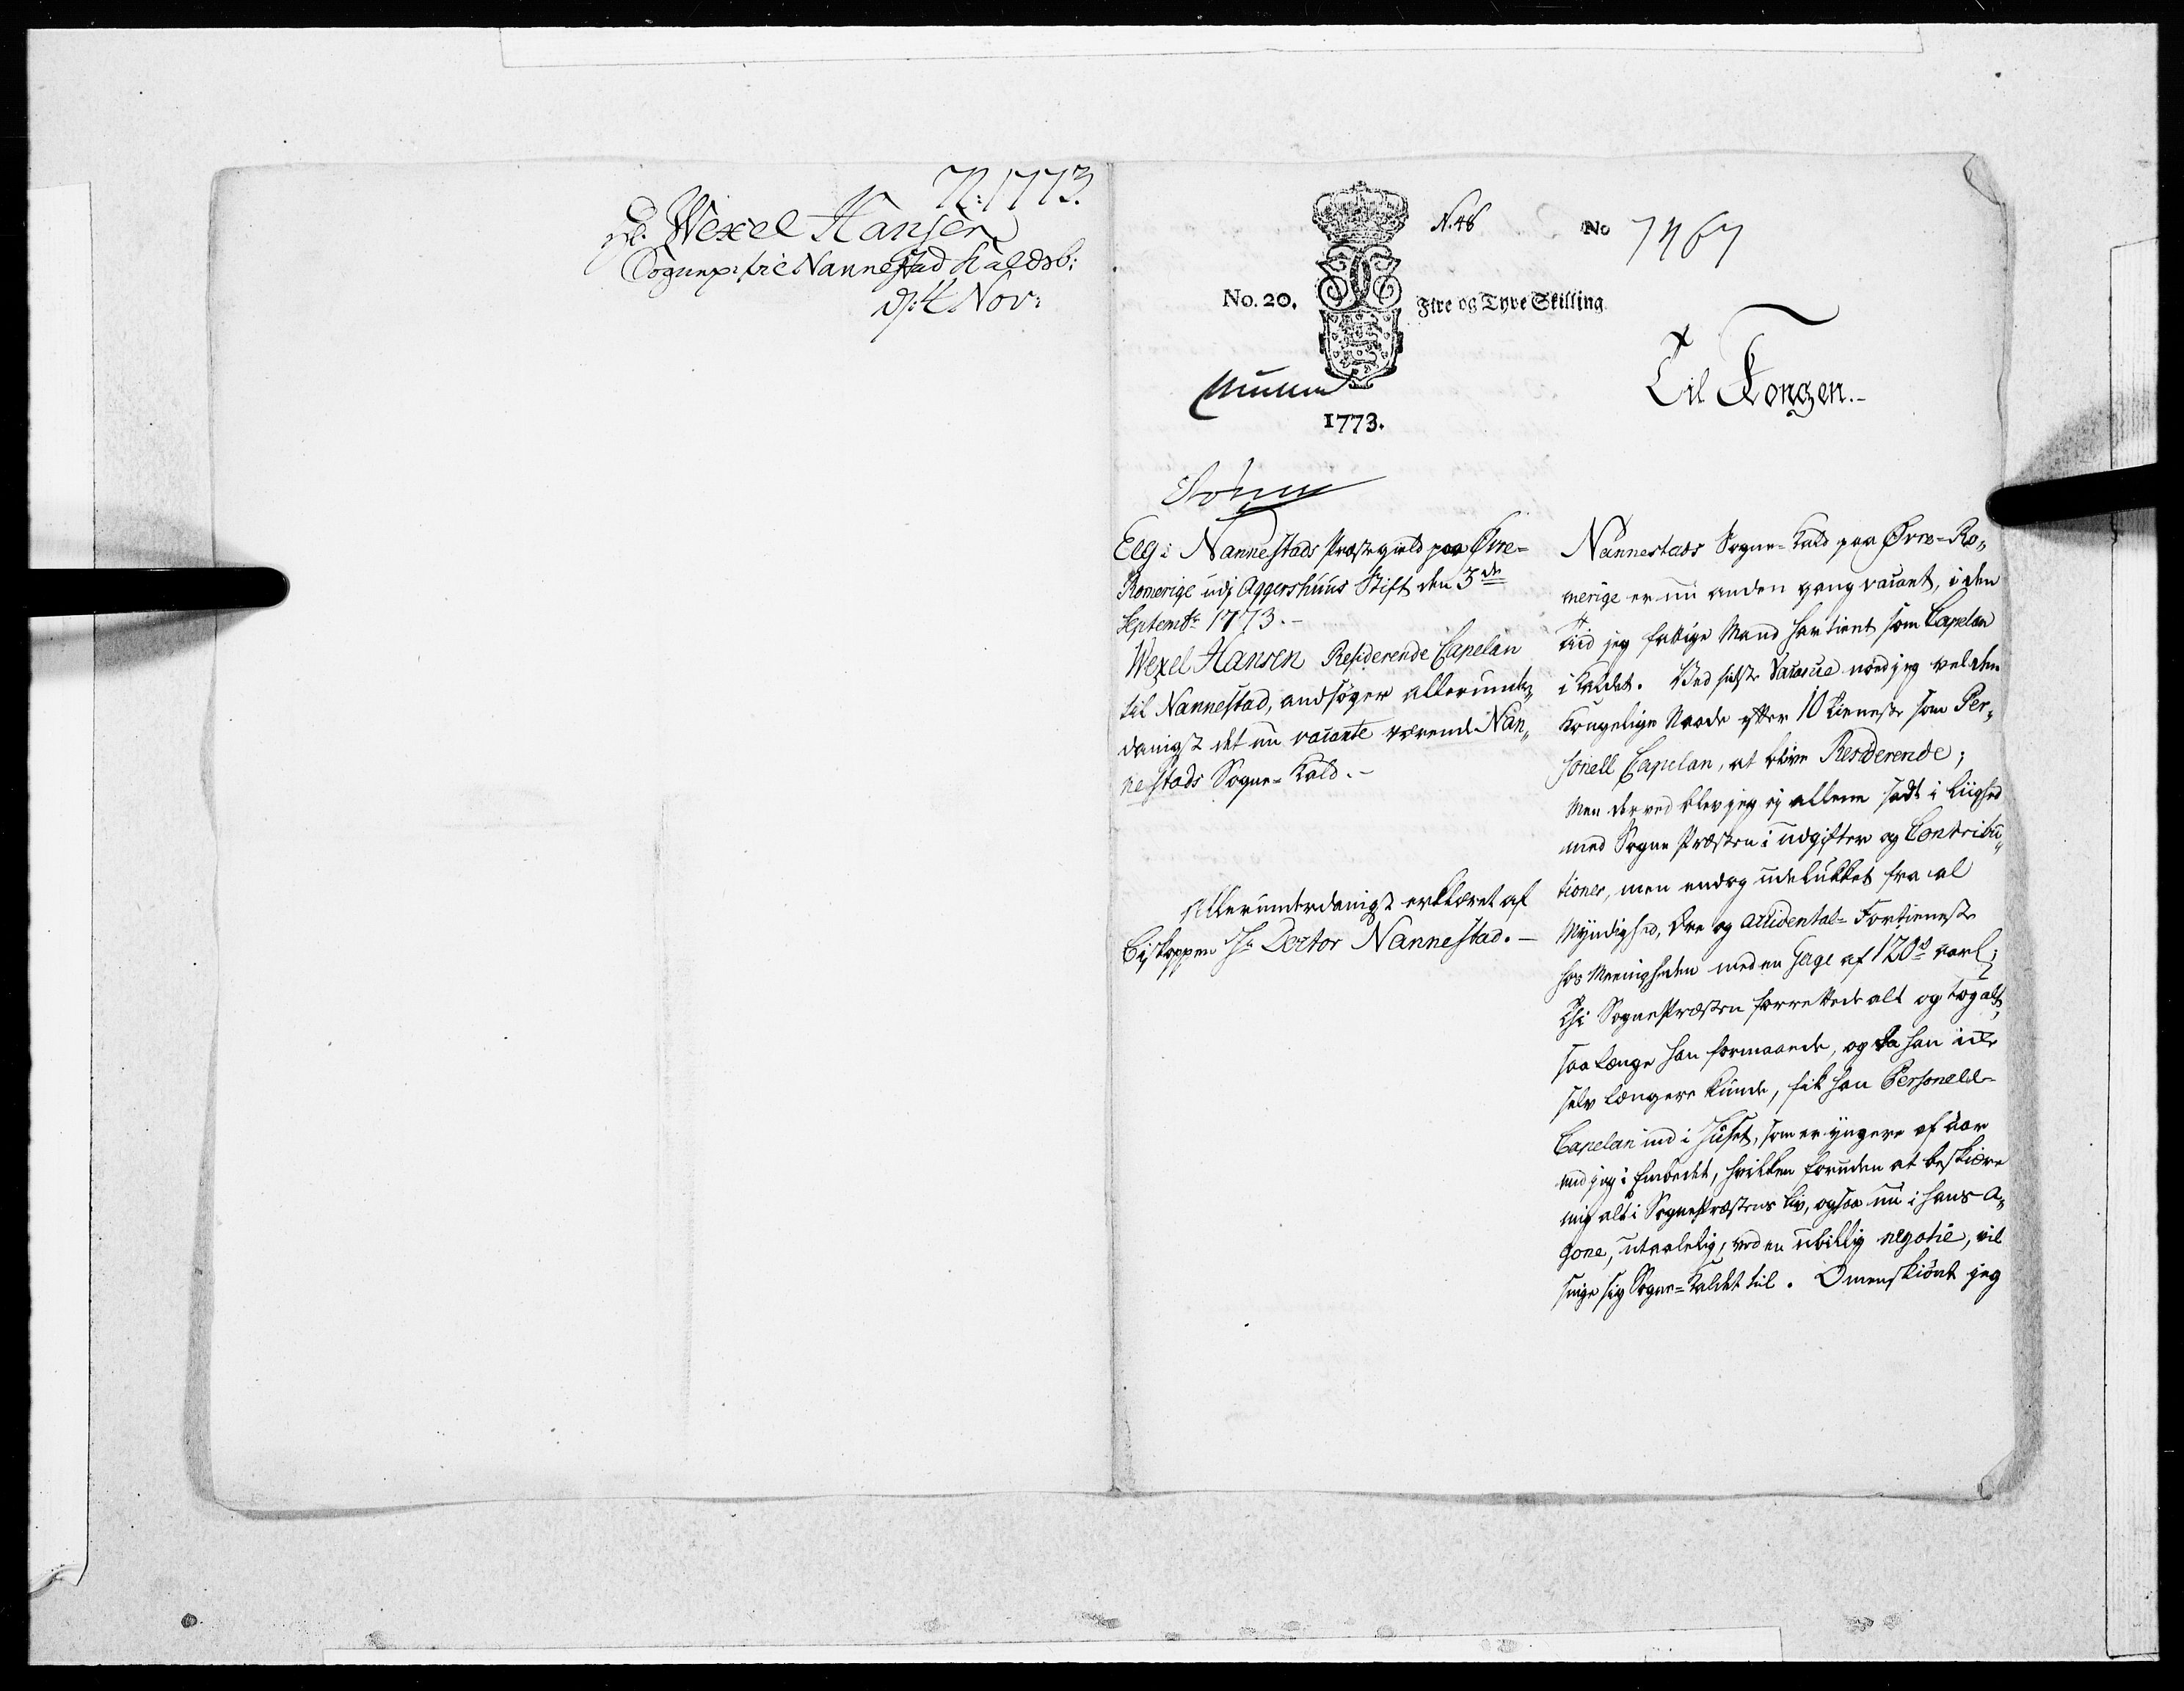 N: 1773.
Wexel Hansen
Sognepr: til Nannestad Kaldsb:
d: 4 Nov:
N.46
No 7467
No. 20.
Fire og Tyve Skilling
1773.
Til Kongen.-
Elg: Nannestads Præstegield paa Øvre=
Romerige udj Aggershuus Stift den 3de
Septembr 1773.-
Wexel Hansen Residerende Capelan
til Nannestad, andsøger allerunder,,
danigst det nu vacante værende Nan,,
nestads Sogne=Kald.-
Allerunderdanigst erklæret af
Biskoppen Hr Doctor Nannestad.-
Nannestads Sogne=Kald paa Øvre=Ro,,
merige er nu anden gang vacant, i den
tiid jeg fattige Mand har tient som Capelan
i Kaldet. Ved sidste Vacance nød jeg vel den
Kongelige Naade efter 10 tieneste som Per,,
sonell Capelan, at blive Residerende;
Men derved blev jeg ej allene sadt i Liighed
med Sogne Præsten i udgifter og Contribu,,
tioner, men endog udelukket fra al
Myndighed, Ære og accidental=Fortieneste
hos Meenigheden med en Gage af 120 aarl;
Thi SognePræsten forrettede alt og tog alt,
saa længe han formaaede, og da han icke
selv længere kunde, fik han Personeld-
Capelan ind i Huset, som er yngere af aar
end jeg i Embedet, hvilken foruden at beskiære
mig alt i SognePræstens Liv, ogsaa nu i hans A,,
gone, utaalelig, ved en ubillig negotie, vil
snige sig Sogne=Kaldet til. Omenskiønt jeg